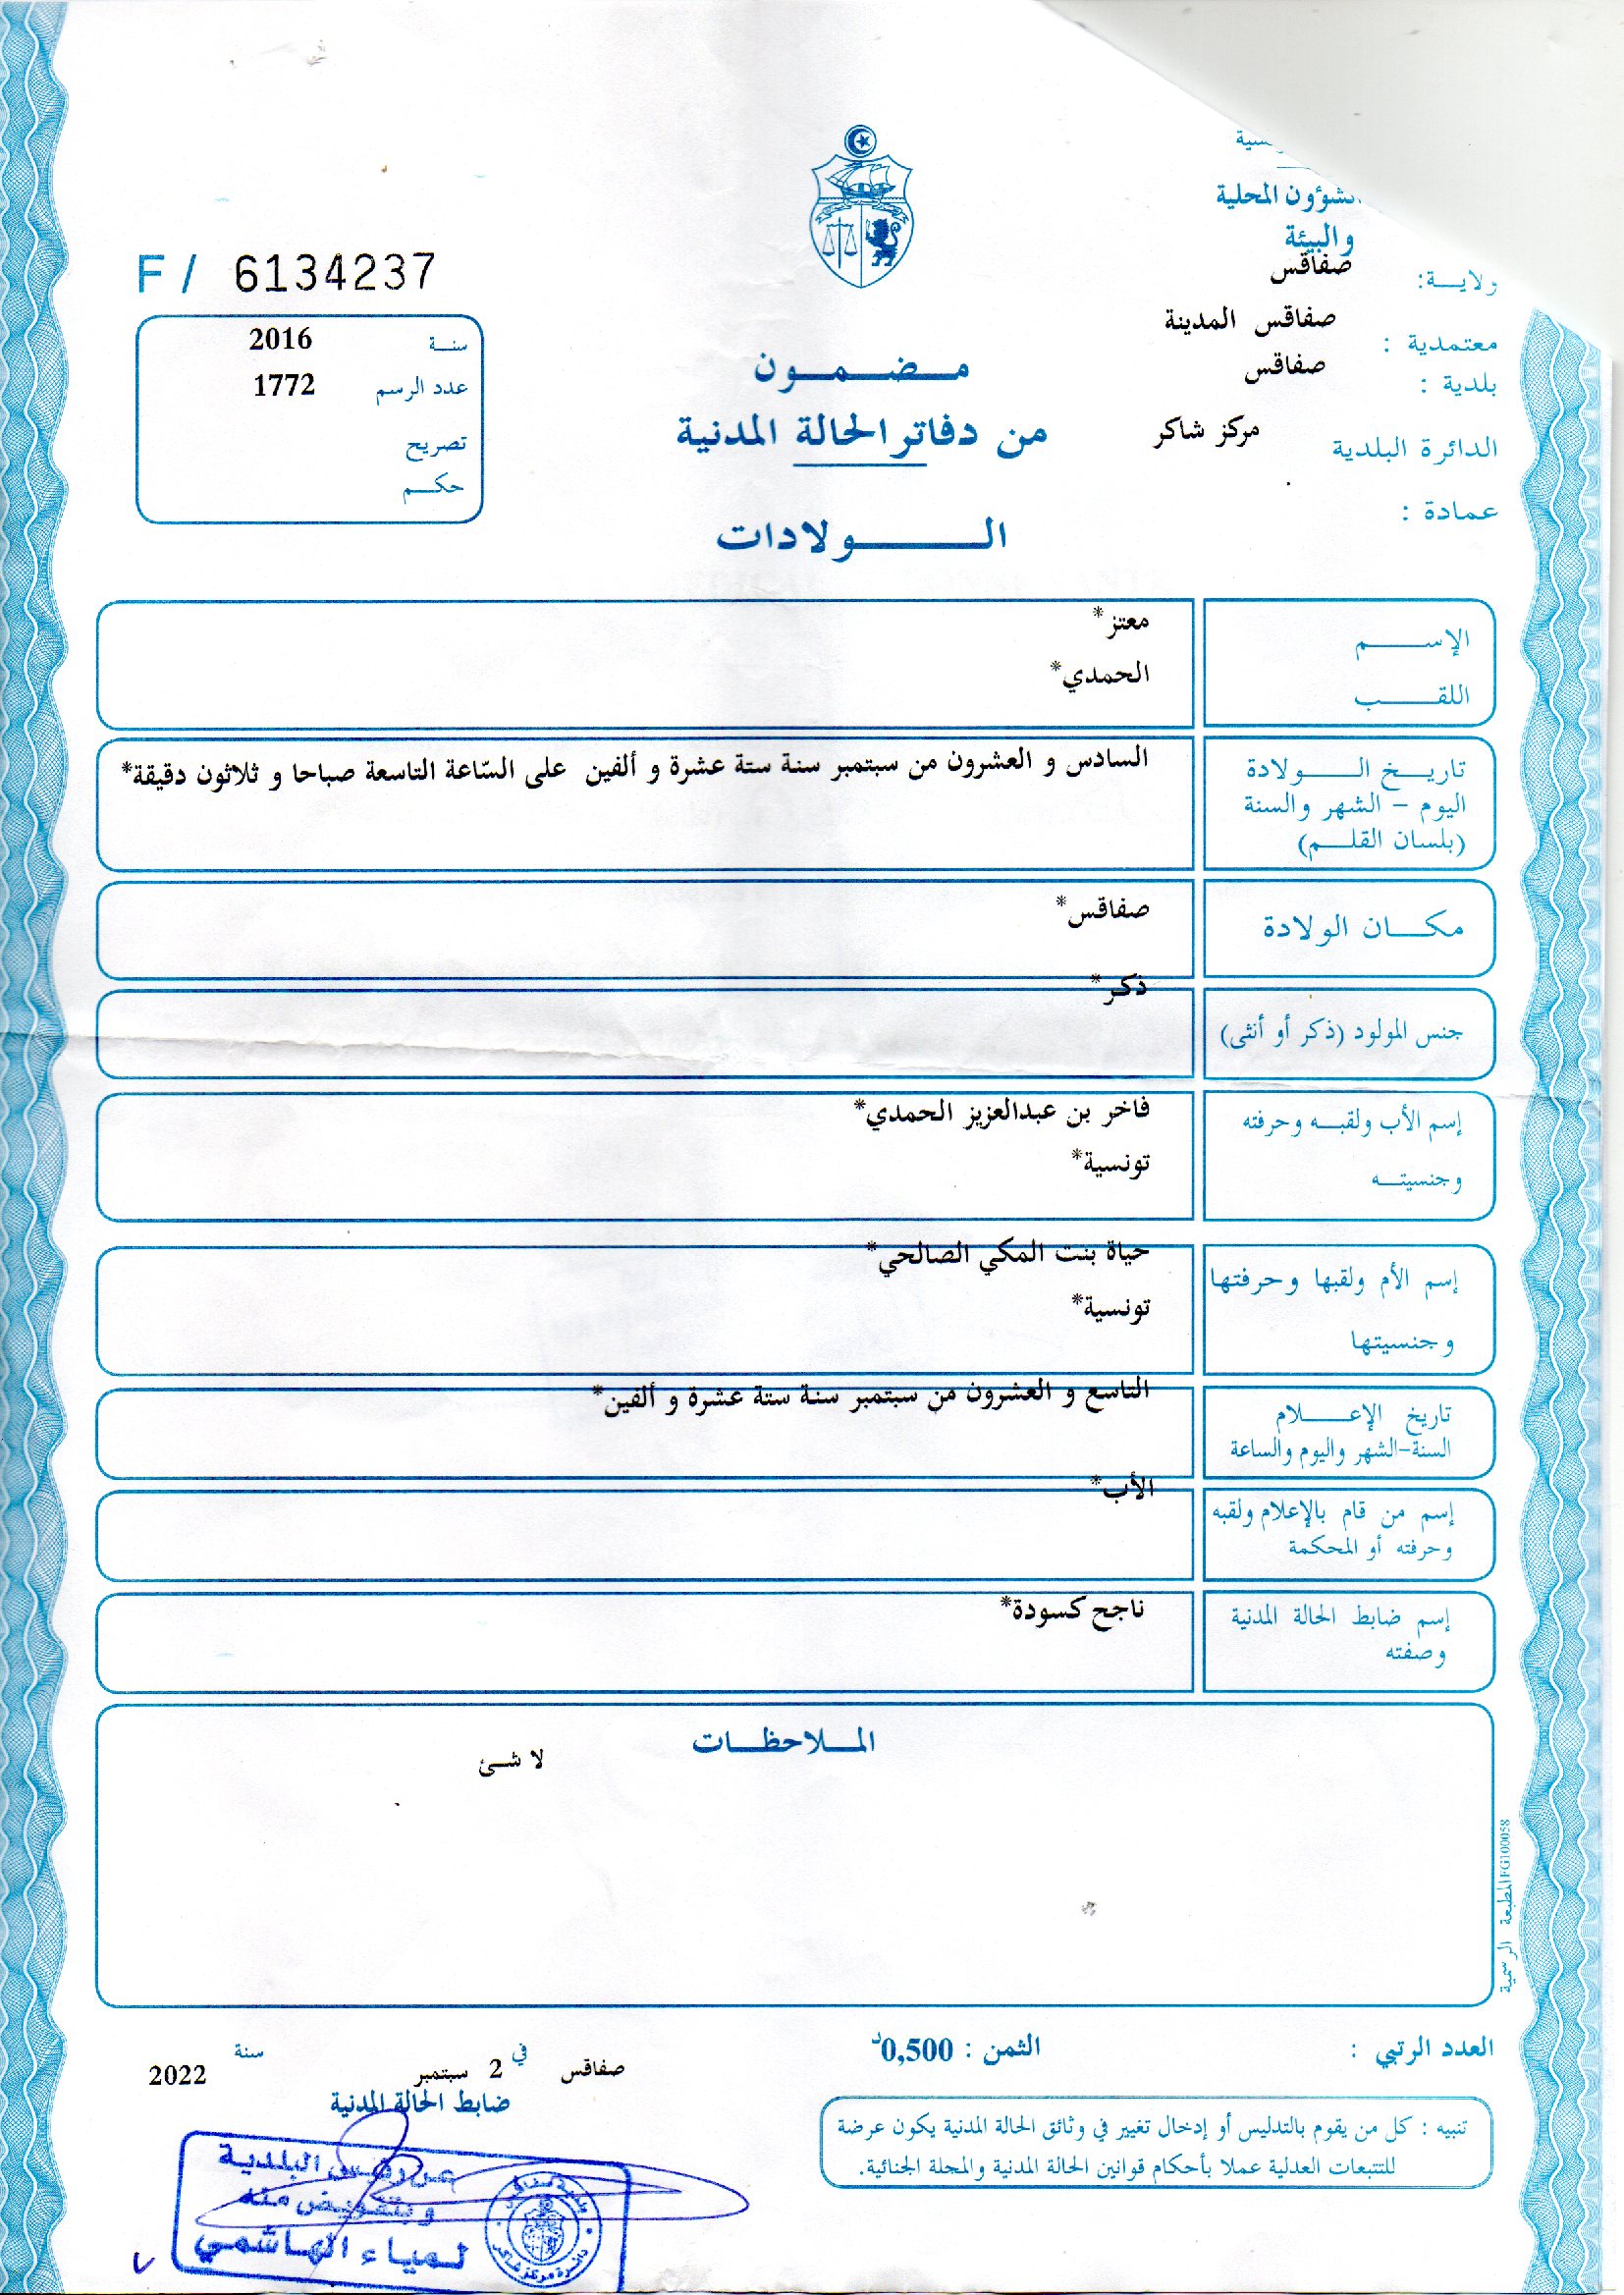 الشؤون المحلية
والبيئة
ولايـــة: صفاقس
معتمدية : صفاقس المدينة
بلدية : صفاقس
الدائرة البلدية مركز شاكر
عمادة :
F / 6134237
سنـة 2016
عدد الرسم 1772
تصريح
حكـــم
مـضـمـون
من دفاتر الحالة المدنية
الـــولادات
الإســـم معتز*
اللقـــب الحمدي*
تاريـــخ الـــولادة السادس و العشرون من سبتمبر سنة ستة عشرة و ألفين على السّاعة التاسعة صباحا و ثلاثون دقيقة*
اليوم - الشهر والسنة
(بلسان القلـــم)
مكـــان الولادة صفاقس*
جنس المولود (ذكر أو أنثى) ذكر*
إسم الأب ولقبـــه وحرفته فاخر بن عبدالعزيز الحمدي*
وجنسيتـــه تونسية*
إسم الأم ولقبها وحرفتها حياة بنت المكي الصالحي*
وجنسيتها تونسية*
تاريخ الإعـــلام التاسع و العشرون من سبتمبر سنة ستة عشرة و ألفين*
السنة-الشهر واليوم والساعة
إسم من قام بالإعلام ولقبه الأب*
وحرفته أو المحكمة
إسم ضابط الحالة المدنية ناجح كسودة*
وصفته
الملاحظـــات
لا شئ
المطبعة الرسمية FG100058
العدد الرتبي :
الثمن : 0,500د
صفاقس في 2 سبتمبر سنة 2022
ضابط الحالة المدنية
تنبيه : كل من يقوم بالتدليس أو إدخال تغيير في وثائق الحالة المدنية يكون عرضة
للتتبعات العدلية عملا بأحكام قوانين الحالة المدنية والمجلة الجنائية.
عن رئيس البلدية
وبتفويض منه
لمياء الهاشمي
دائرة مركز شاكر